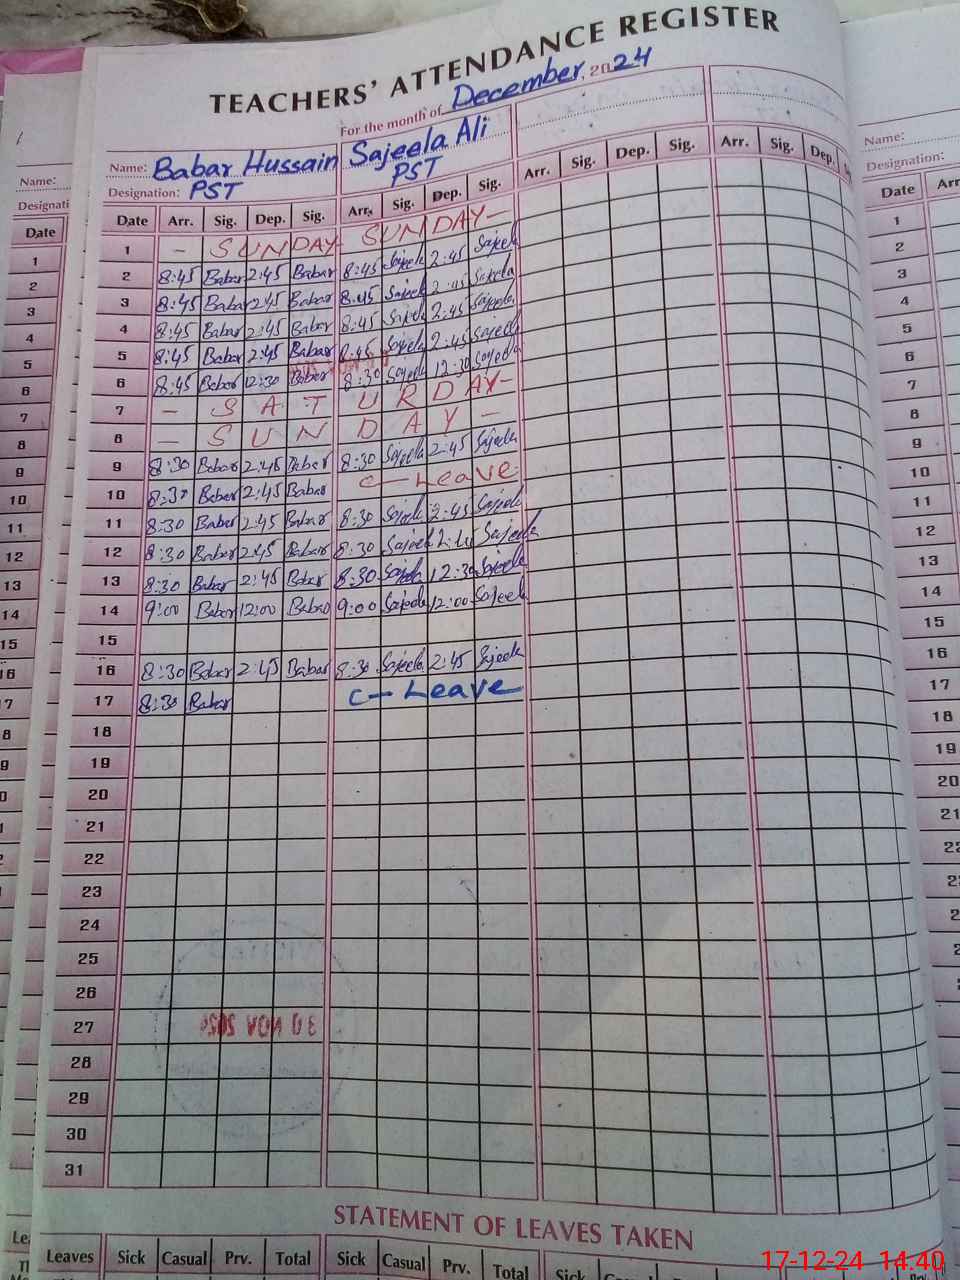 TEACHERS' ATTENDANCE REGISTER
For the month of December, 2024
Name: Babar Hussain Sajeela Ali
Designation: PST PST
Date Arr. Sig. Dep. Sig. Arr. Sig. Dep. Sig. Arr. Sig. Dep. Sig. Arr. Sig. Dep.
1 - SUNDAY SUNDAY-
2 8:45 Babar 2:45 Babar 8:45 Sajeela 2:45 Sajeela
3 8:45 Babar 2:45 Babar 8:45 Sajeela 2:45 Sajeela
4 8:45 Babar 2:45 Babar 8:45 Sajeela 2:45 Sajeela
5 8:45 Babar 2:45 Babar 8:45 Sajeela 2:45 Sajeela
6 8:45 Babar 12:30 Babar 8:30 Sajeela 12:30 Sajeela
7 - S A T U R D A Y-
8 - S U N D A Y -
9 8:30 Babar 2:45 Babar 8:30 Sajeela 2:45 Sajeela
10 8:30 Babar 2:45 Babar C-Leave
11 8:30 Babar 2:45 Babar 8:30 Sajeela 2:45 Sajeela
12 8:30 Babar 2:45 Babar 8:30 Sajeela Sajeela
13 8:30 Babar 2:45 Babar 8:30 Sajeela 12:30 Sajeela
14 9:00 Babar 12:00 Babar 9:00 Sajeela 12:00 Sajeela
15
16 8:30 Babar 2:45 Babar 8:30 Sajeela 2:45 Sajeela
17 8:30 Babar C-Leave
18
19
20
21
22
23
24
25
26
27 30 NOV 2024
28
29
30
31
STATEMENT OF LEAVES TAKEN
Leaves Sick Casual Prv. Total Sick Casual Prv. Total Sick
17-12-24 14.40